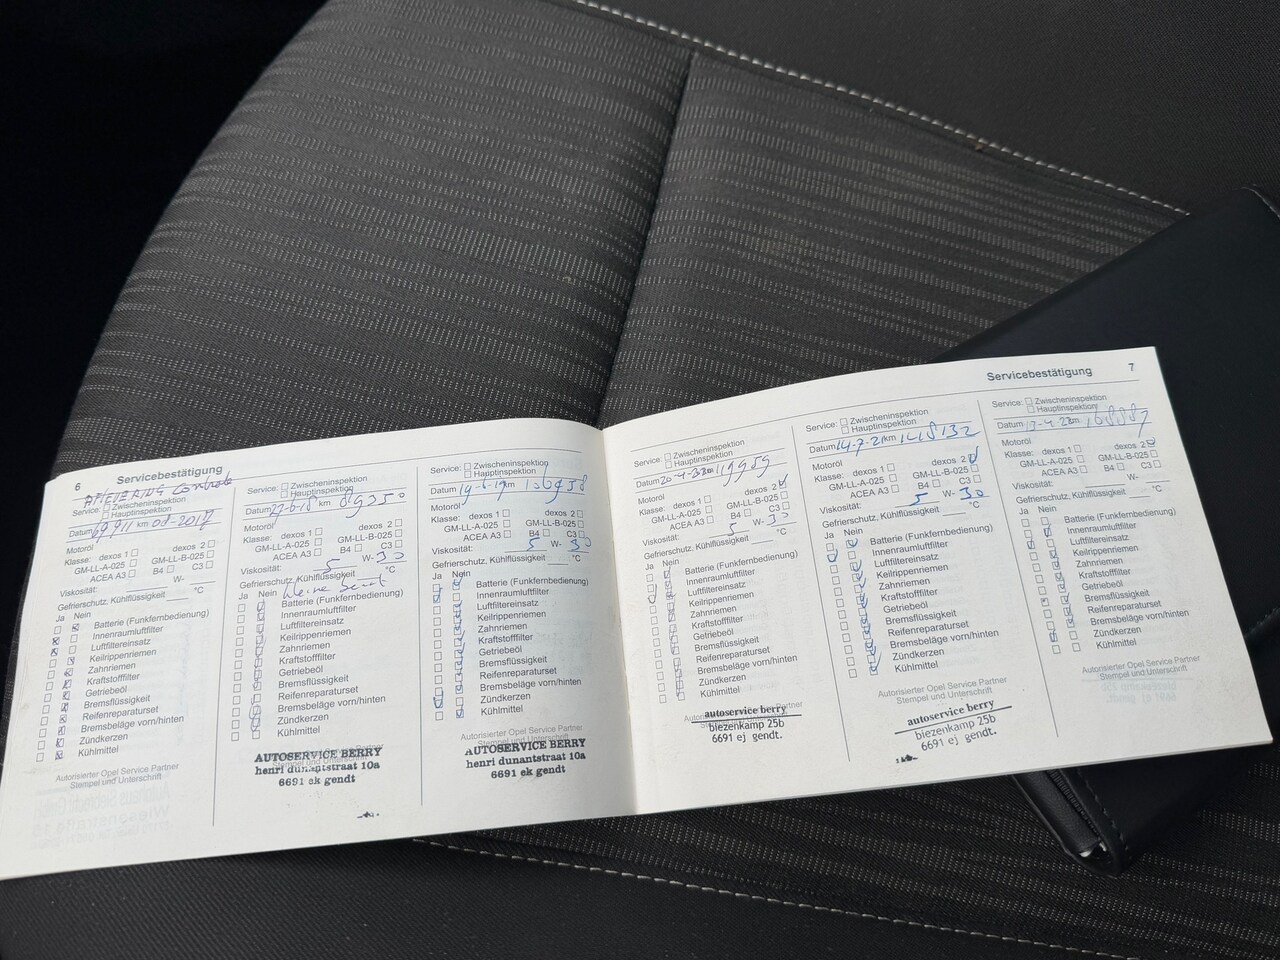 6 Servicebestätigung
Service: Zwischeninspektion
Hauptinspektion
Datum 69911 km 08-2017
Motoröl
Klasse: dexos 1 dexos 2
GM-LL-A-025 GM-LL-B-025
ACEA A3 B4 C3
Viskosität: W-
Gefrierschutz, Kühlflüssigkeit °C
Ja Nein
Batterie (Funkfernbedienung)
Innenraumluftfilter
Luftfiltereinsatz
Keilrippenriemen
Zahnriemen
Kraftstofffilter
Getriebeöl
Bremsflüssigkeit
Reifenreparaturset
Bremsbeläge vorn/hinten
Zündkerzen
Kühlmittel
Autorisierter Opel Service Partner
Stempel und Unterschrift
Service: Zwischeninspektion
Hauptinspektion
Datum 27-6-18 km 89350
Motoröl
Klasse: dexos 1 dexos 2
GM-LL-A-025 GM-LL-B-025
ACEA A3 B4 C3
Viskosität: 5 W-30
Gefrierschutz, Kühlflüssigkeit °C
Ja Nein
Batterie (Funkfernbedienung)
Innenraumluftfilter
Luftfiltereinsatz
Keilrippenriemen
Zahnriemen
Kraftstofffilter
Getriebeöl
Bremsflüssigkeit
Reifenreparaturset
Bremsbeläge vorn/hinten
Zündkerzen
Kühlmittel
AUTOSERVICE BERRY
henri dunantstraat 10a
6691 ek gendt
Service: Zwischeninspektion
Hauptinspektion
Datum 14-6-19 km 106958
Motoröl
Klasse: dexos 1 dexos 2
GM-LL-A-025 GM-LL-B-025
ACEA A3 B4 C3
Viskosität: 5 W-30
Gefrierschutz, Kühlflüssigkeit °C
Ja Nein
Batterie (Funkfernbedienung)
Innenraumluftfilter
Luftfiltereinsatz
Keilrippenriemen
Zahnriemen
Kraftstofffilter
Getriebeöl
Bremsflüssigkeit
Reifenreparaturset
Bremsbeläge vorn/hinten
Zündkerzen
Kühlmittel
Autorisierter Opel Service Partner
AUTOSERVICE BERRY
henri dunantstraat 10a
6691 ek gendt
Servicebestätigung 7
Service: Zwischeninspektion
Hauptinspektion
Datum km
Motoröl
Klasse: dexos 1 dexos 2
GM-LL-A-025 GM-LL-B-025
ACEA A3 B4 C3
Viskosität: 5 W-30
Gefrierschutz, Kühlflüssigkeit °C
Ja Nein
Batterie (Funkfernbedienung)
Innenraumluftfilter
Luftfiltereinsatz
Keilrippenriemen
Zahnriemen
Kraftstofffilter
Getriebeöl
Bremsflüssigkeit
Reifenreparaturset
Bremsbeläge vorn/hinten
Zündkerzen
Kühlmittel
autoservice berry
biezenkamp 25b
6691 ej gendt.
Service: Zwischeninspektion
Hauptinspektion
Datum 14-7-21 km 148132
Motoröl
Klasse: dexos 1 dexos 2
GM-LL-A-025 GM-LL-B-025
ACEA A3 B4 C3
Viskosität: 5 W-30
Gefrierschutz, Kühlflüssigkeit °C
Ja Nein
Batterie (Funkfernbedienung)
Innenraumluftfilter
Luftfiltereinsatz
Keilrippenriemen
Zahnriemen
Kraftstofffilter
Getriebeöl
Bremsflüssigkeit
Reifenreparaturset
Bremsbeläge vorn/hinten
Zündkerzen
Kühlmittel
Autorisierter Opel Service Partner
Stempel und Unterschrift
autoservice berry
biezenkamp 25b
6691 ej gendt.
Service: Zwischeninspektion
Hauptinspektion
Datum km
Motoröl
Klasse: dexos 1 dexos 2
GM-LL-A-025 GM-LL-B-025
ACEA A3 B4 C3
Viskosität: W-
Gefrierschutz, Kühlflüssigkeit °C
Ja Nein
Batterie (Funkfernbedienung)
Innenraumluftfilter
Luftfiltereinsatz
Keilrippenriemen
Zahnriemen
Kraftstofffilter
Getriebeöl
Bremsflüssigkeit
Reifenreparaturset
Bremsbeläge vorn/hinten
Zündkerzen
Kühlmittel
Autorisierter Opel Service Partner
Stempel und Unterschrift